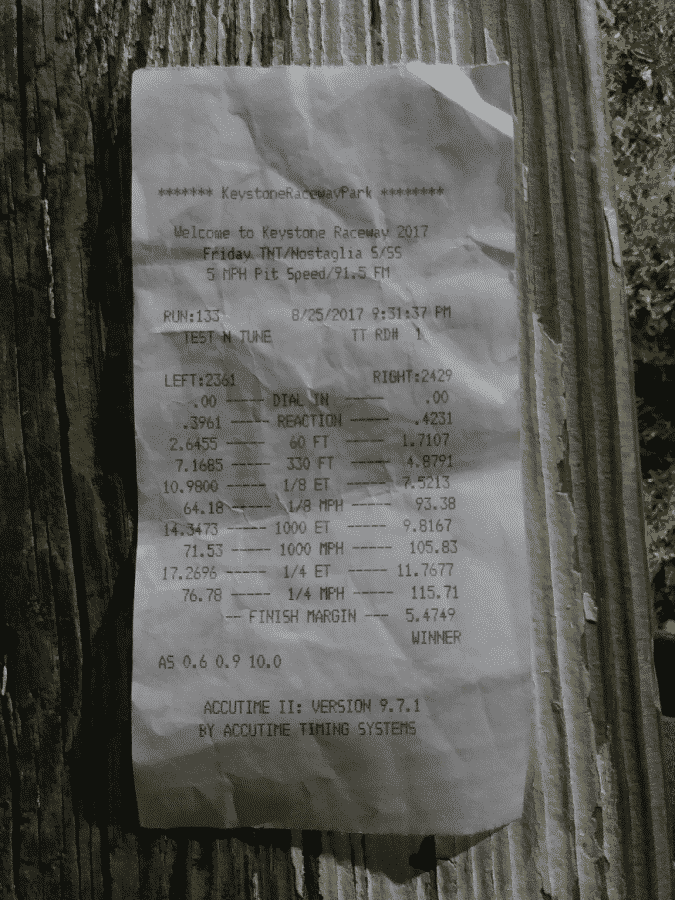 ******* KeystoneRacewayPark ********
Welcome to Keystone Raceway 2017
Friday TNT/Nostaglia S/SS
5 MPH Pit Speed/91.5 FM
RUN:133 8/25/2017 9:31:37 PM
TEST N TUNE TT RD# 1
LEFT:2361 RIGHT:2429
.00 ----- DIAL IN ----- .00
.3961 ----- REACTION ----- .4231
2.6455 ----- 60 FT ----- 1.7107
7.1685 ----- 330 FT ----- 4.8791
10.9800 ----- 1/8 ET ----- 7.5213
64.18 ----- 1/8 MPH ----- 93.38
14.3473 ----- 1000 ET ----- 9.8167
71.53 ----- 1000 MPH ----- 105.83
17.2696 ----- 1/4 ET ----- 11.7677
76.78 ----- 1/4 MPH ----- 115.71
-- FINISH MARGIN --- 5.4749
WINNER
AS 0.6 0.9 10.0
ACCUTIME II: VERSION 9.7.1
BY ACCUTIME TIMING SYSTEMS